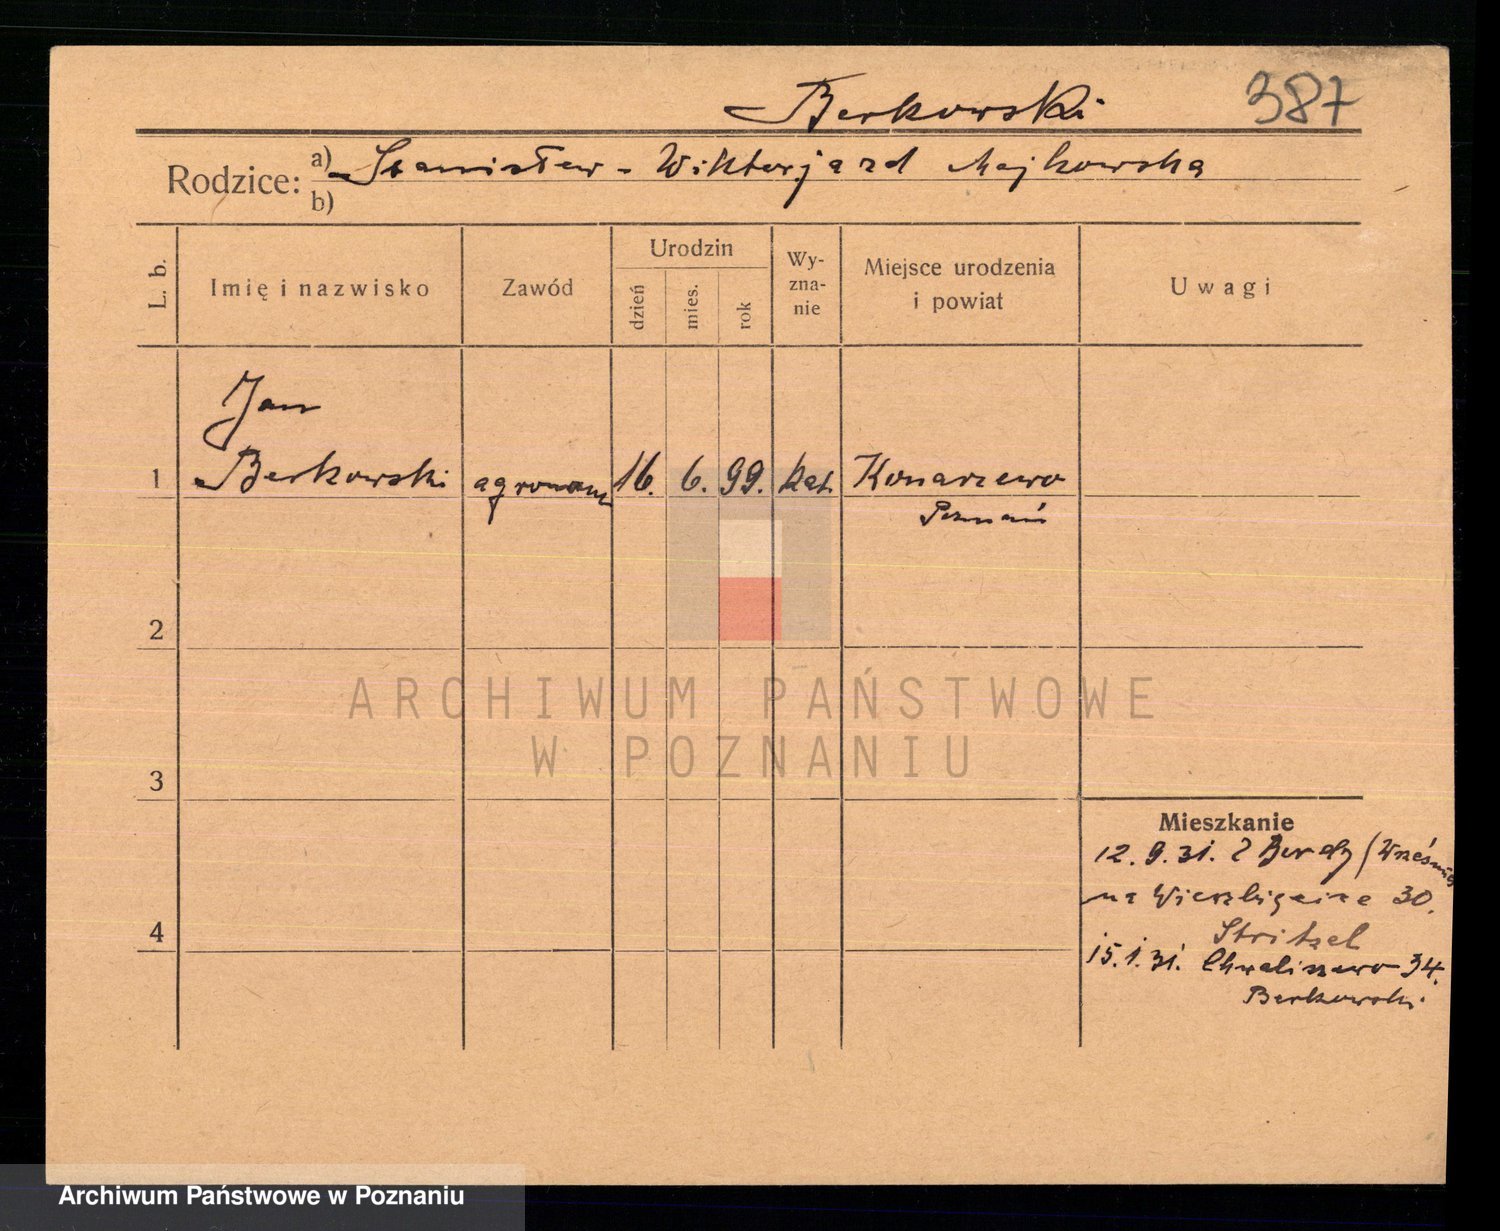 Berkowski 387
Rodzice: a) Stanisław - Wiktorja zd Majkowska
b)
L. b. Imię i nazwisko Zawód Urodzin dzień mies. rok Wy-zna-nie Miejsce urodzenia i powiat Uwagi
Jan
1 Berkowski agronom 16. 6. 99. kat. Konarzewo
Poznań
2
ARCHIWUM PAŃSTWOWE
W POZNANIU
3
Mieszkanie
12. 9. 31. Z (Wrześni
na Wierzbięcice 30.
4
Stritzel
15. 1. 31. Chwaliszewo 34.
Berkowski
Archiwum Państwowe w Poznaniu